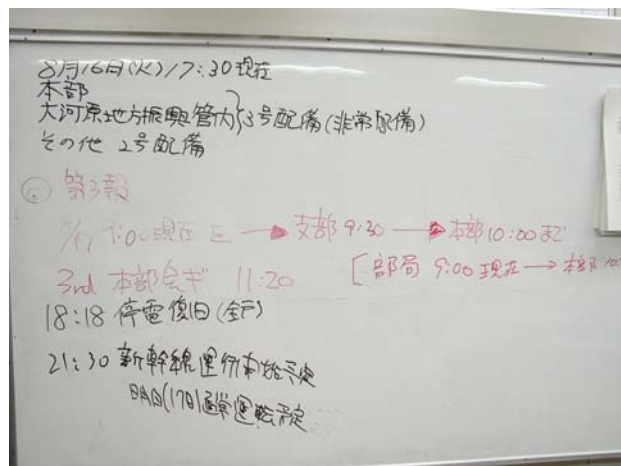 8月16日(火)17:30現在
本部
大河原地方振興管内}3号配備(非常配備)
その他 2号配備
⑥ 第3報
8/17 9:00現在を → 支部9:30 → 本部10:00まで
[部局 9:00現在 → 本部10:
3rd 本部会ギ 11:20
18:18 停電復旧(全戸)
21:30 新幹線運行開始予定
明日(17日)通常運転予定